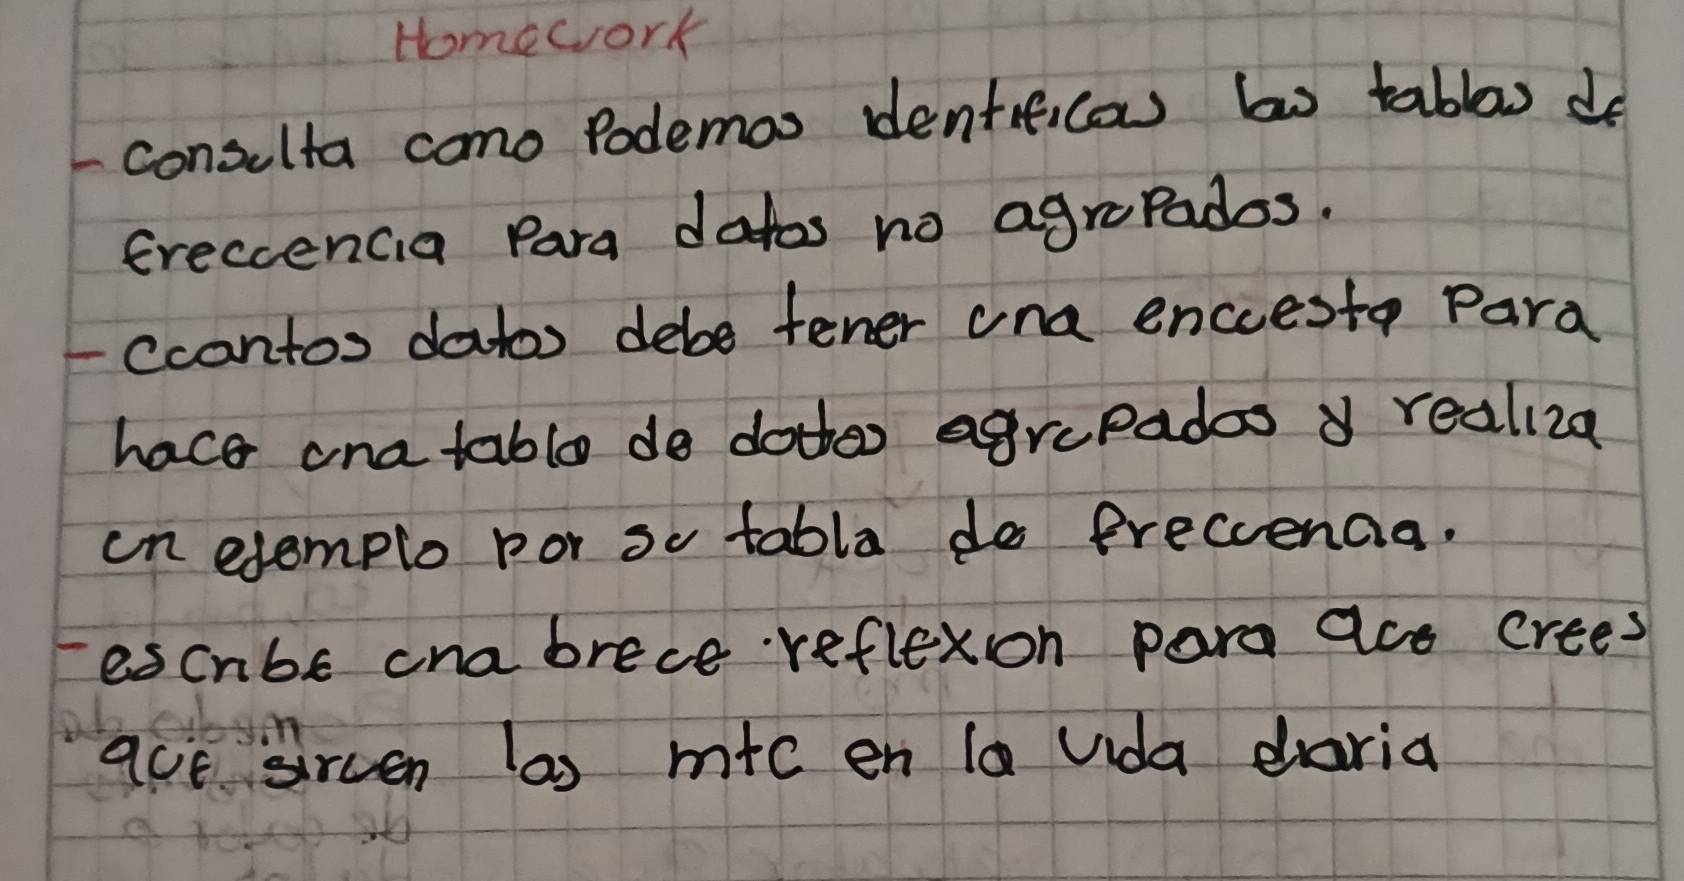 Homework
- consulta como Podemos identificas las tablas de
frecuencia Para datos no agrupados.
- cuantos datos debe tener una encuesta Para
hace una tabla de datos agrupados y realiza
un ejemplo por su tabla de frecuencia.
- escribe una breve reflexion para que crees
que sirven las mtc en la vida diaria